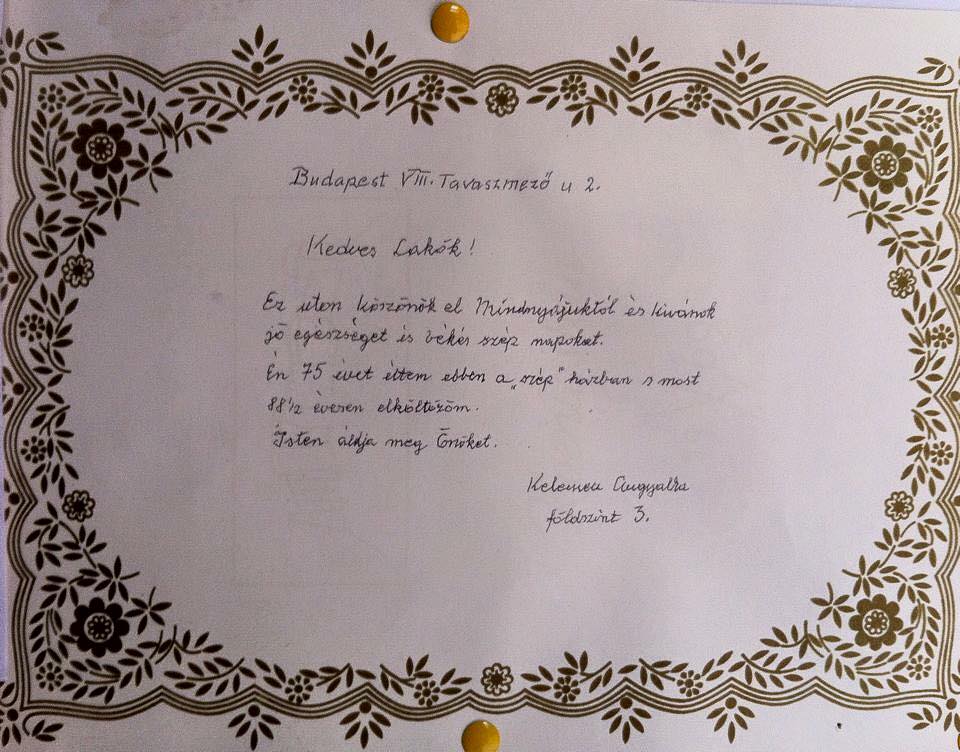 Budapest VIII. Tavaszmező u 2.
Kedves Lakók!
Ez uton köszönök el Mindnyájuktól és kivánok
jó egészséget és békés szép napokat.
Én 75 évet éltem ebben a „szép" házban s most
88 1/2 évesen elköltözöm.
Isten áldja meg Önöket.
Kelemen Angyalka
földszint 3.